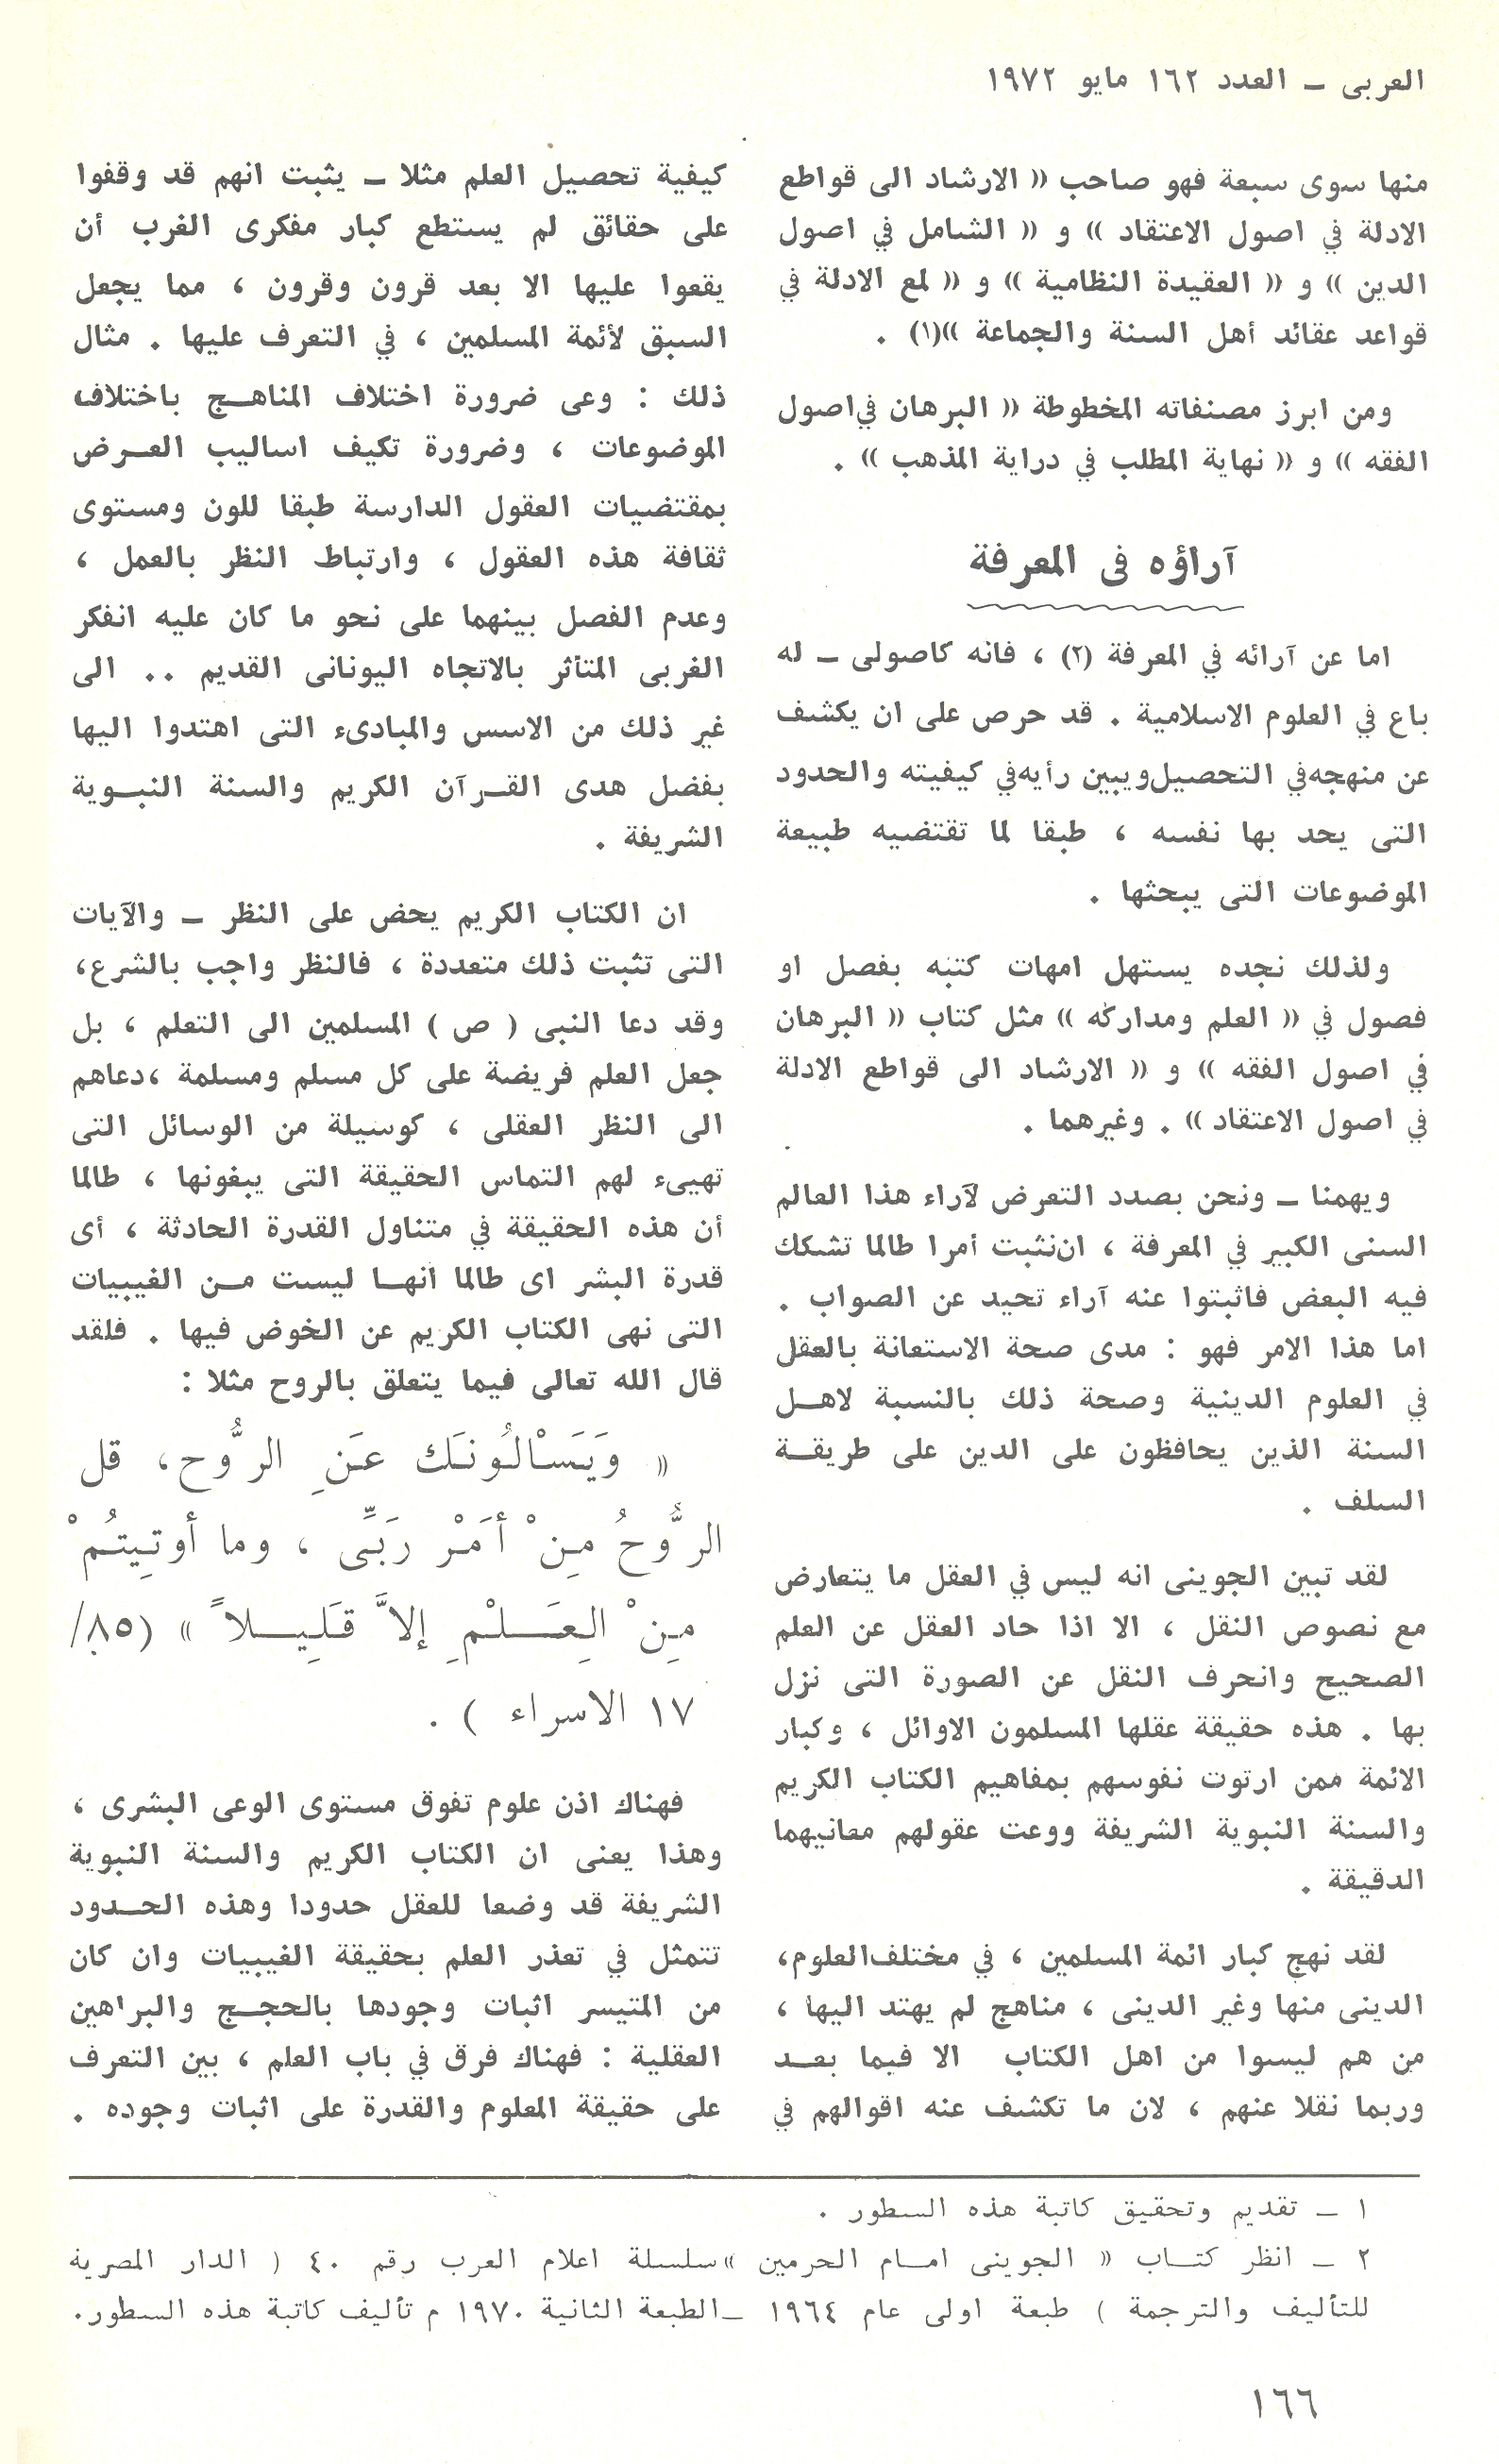 العربى ــ العدد ١٦٢ مايو ١٩٧٢
منها سوى سبعة فهو صاحب « الارشاد الى قواطع
الادلة في اصول الاعتقاد » و « الشامل في اصول
الدين » و « العقيدة النظامية » و « لمع الادلة في
قواعد عقائد أهل السنة والجماعة »(١) .
ومن ابرز مصنفاته المخطوطة « البرهان في اصول
الفقه » و « نهاية المطلب في دراية المذهب » .
آراؤه فى المعرفة
اما عن آرائه في المعرفة (٢) ، فانه كاصولى ــ له
باع في العلوم الاسلامية . قد حرص على ان يكشف
عن منهجه في التحصيل ويبين رأيه في كيفيته والحدود
التى يحد بها نفسه ، طبقا لما تقتضيه طبيعة
الموضوعات التى يبحثها .
ولذلك نجده يستهل امهات كتبه بفصل او
فصول في « العلم ومداركه » مثل كتاب « البرهان
في اصول الفقه » و « الارشاد الى قواطع الادلة
في اصول الاعتقاد » . وغيرهما .
ويهمنا ــ ونحن بصدد التعرض لآراء هذا العالم
السنى الكبير في المعرفة ، ان نثبت أمرا طالما تشكك
فيه البعض فاثبتوا عنه آراء تحيد عن الصواب .
اما هذا الامر فهو : مدى صحة الاستعانة بالعقل
في العلوم الدينية وصحة ذلك بالنسبة لاهــل
السنة الذين يحافظون على الدين على طريقــة
السلف .
لقد تبين الجوينى انه ليس في العقل ما يتعارض
مع نصوص النقل ، الا اذا حاد العقل عن العلم
الصحيح وانحرف النقل عن الصورة التى نزل
بها . هذه حقيقة عقلها المسلمون الاوائل ، وكبار
الائمة ممن ارتوت نفوسهم بمفاهيم الكتاب الكريم
والسنة النبوية الشريفة ووعت عقولهم معانيهما
الدقيقة .
لقد نهج كبار ائمة المسلمين ، في مختلف العلوم،
الدينى منها وغير الدينى ، مناهج لم يهتد اليها ،
من هم ليسوا من اهل الكتاب الا فيما بعــد
وربما نقلا عنهم ، لان ما تكشف عنه اقوالهم في
كيفية تحصيل العلم مثلا ــ يثبت انهم قد وقفوا
على حقائق لم يستطع كبار مفكرى الغرب أن
يقعوا عليها الا بعد قرون وقرون ، مما يجعل
السبق لأئمة المسلمين ، في التعرف عليها . مثال
ذلك : وعى ضرورة اختلاف المناهــج باختلاف
الموضوعات ، وضرورة تكيف اساليب العــرض
بمقتضيات العقول الدارسة طبقا للون ومستوى
ثقافة هذه العقول ، وارتباط النظر بالعمل ،
وعدم الفصل بينهما على نحو ما كان عليه انفكر
الغربى المتأثر بالاتجاه اليونانى القديم .. الى
غير ذلك من الاسس والمبادىء التى اهتدوا اليها
بفضل هدى القــرآن الكريم والسنة النبــوية
الشريفة .
ان الكتاب الكريم يحض على النظر ــ والآيات
التى تثبت ذلك متعددة ، فالنظر واجب بالشرع،
وقد دعا النبى ( ص ) المسلمين الى التعلم ، بل
جعل العلم فريضة على كل مسلم ومسلمة ،دعاهم
الى النظر العقلى ، كوسيلة من الوسائل التى
تهيىء لهم التماس الحقيقة التى يبغونها ، طالما
أن هذه الحقيقة في متناول القدرة الحادثة ، أى
قدرة البشر اى طالما انهــا ليست مــن الغيبيات
التى نهى الكتاب الكريم عن الخوض فيها . فلقد
قال الله تعالى فيما يتعلق بالروح مثلا :
« وَيَسَْالُونَك عَنِ الرُّوح، قل
الرُّوحُ مِنْ أمَْرِ رَبِّى ، وما أوتِيتُمْ
مِنْ الِعَــلْمِ إلاَّ قَلِيــلاً » (٨٥/
١٧ الاسراء ) .
فهناك اذن علوم تفوق مستوى الوعى البشرى ،
وهذا يعنى ان الكتاب الكريم والسنة النبوية
الشريفة قد وضعا للعقل حدودا وهذه الحــدود
تتمثل في تعذر العلم بحقيقة الغيبيات وان كان
من المتيسر اثبات وجودها بالحجــج والبراهين
العقلية : فهناك فرق في باب العلم ، بين التعرف
على حقيقة المعلوم والقدرة على اثبات وجوده .
١ ــ تقديم وتحقيق كاتبة هذه السطور .
٢ ــ انظر كتــاب « الجوينى امــام الحرمين »سلسلة اعلام العرب رقم ٤٠ ( الدار المصرية
للتأليف والترجمة ) طبعة اولى عام ١٩٦٤ ــالطبعة الثانية ١٩٧٠ م تأليف كاتبة هذه السطور.
١٦٦